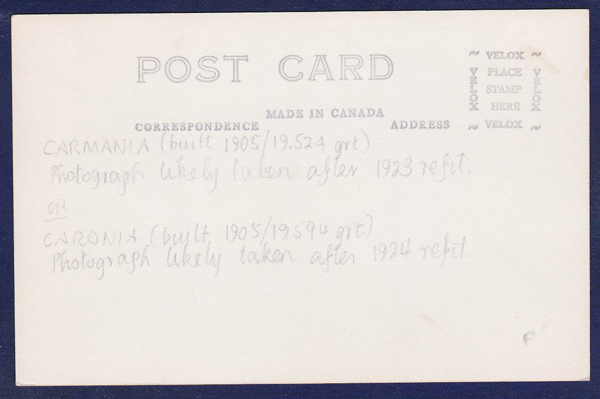 POST CARD
~ VELOX ~
VELOX PLACE VELOX
STAMP
HERE
~ VELOX ~
MADE IN CANADA
CORRESPONDENCE ADDRESS
CARMANIA (built 1905/19.524 grt)
Photograph likely taken after 1923 refit.
OR
CARONIA (built 1905/19594 grt.)
Photograph likely taken after 1924 refit